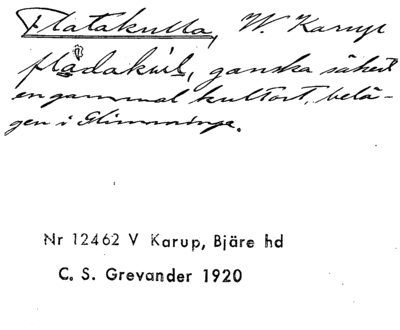 Flatakulla, V. Karup
flàdakúl, ganska säkert
en gammal kultort, belä-
gen i Glimminge.
Nr 12462 V Karup, Bjäre hd
C. S. Grevander 1920